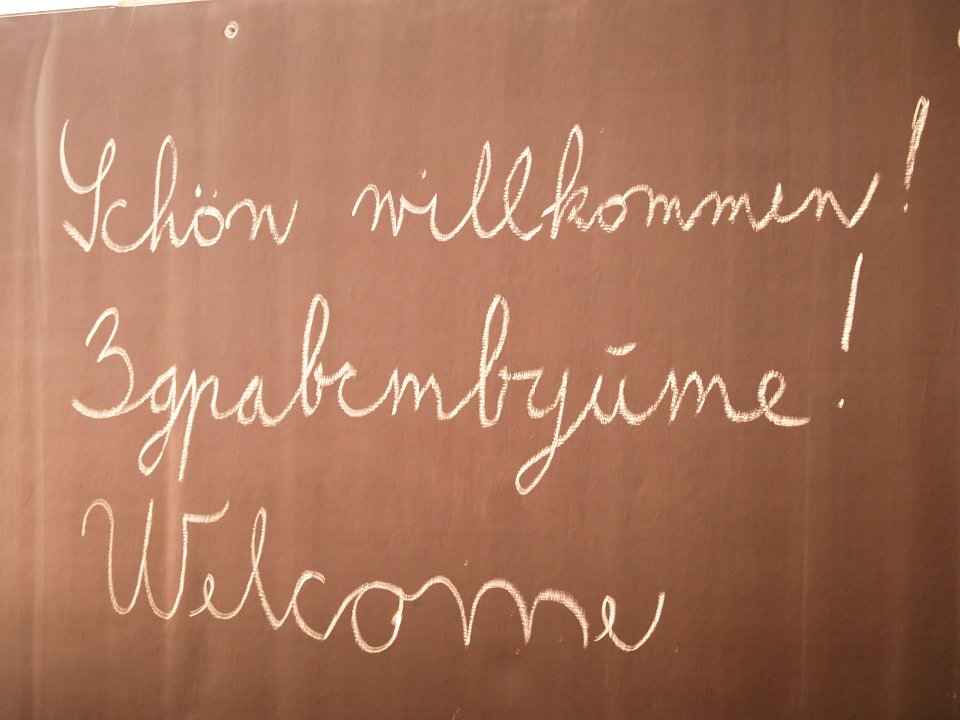 Schön willkommen!
Здравствуйте!
Welcome